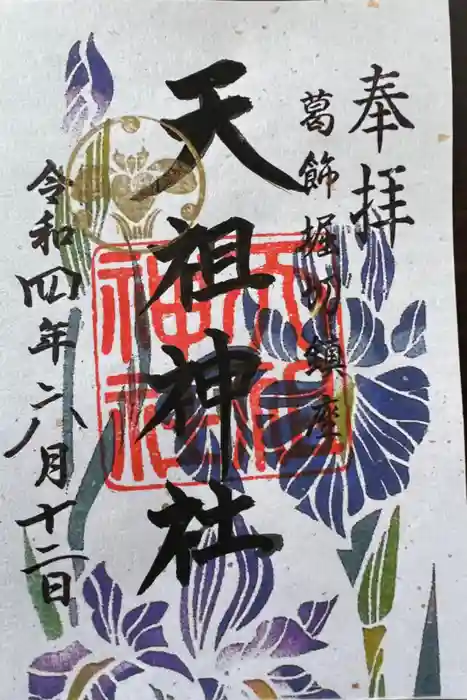 奉拝
葛飾堀切鎮座
天祖神社
令和四年六月十二日
天祖神社